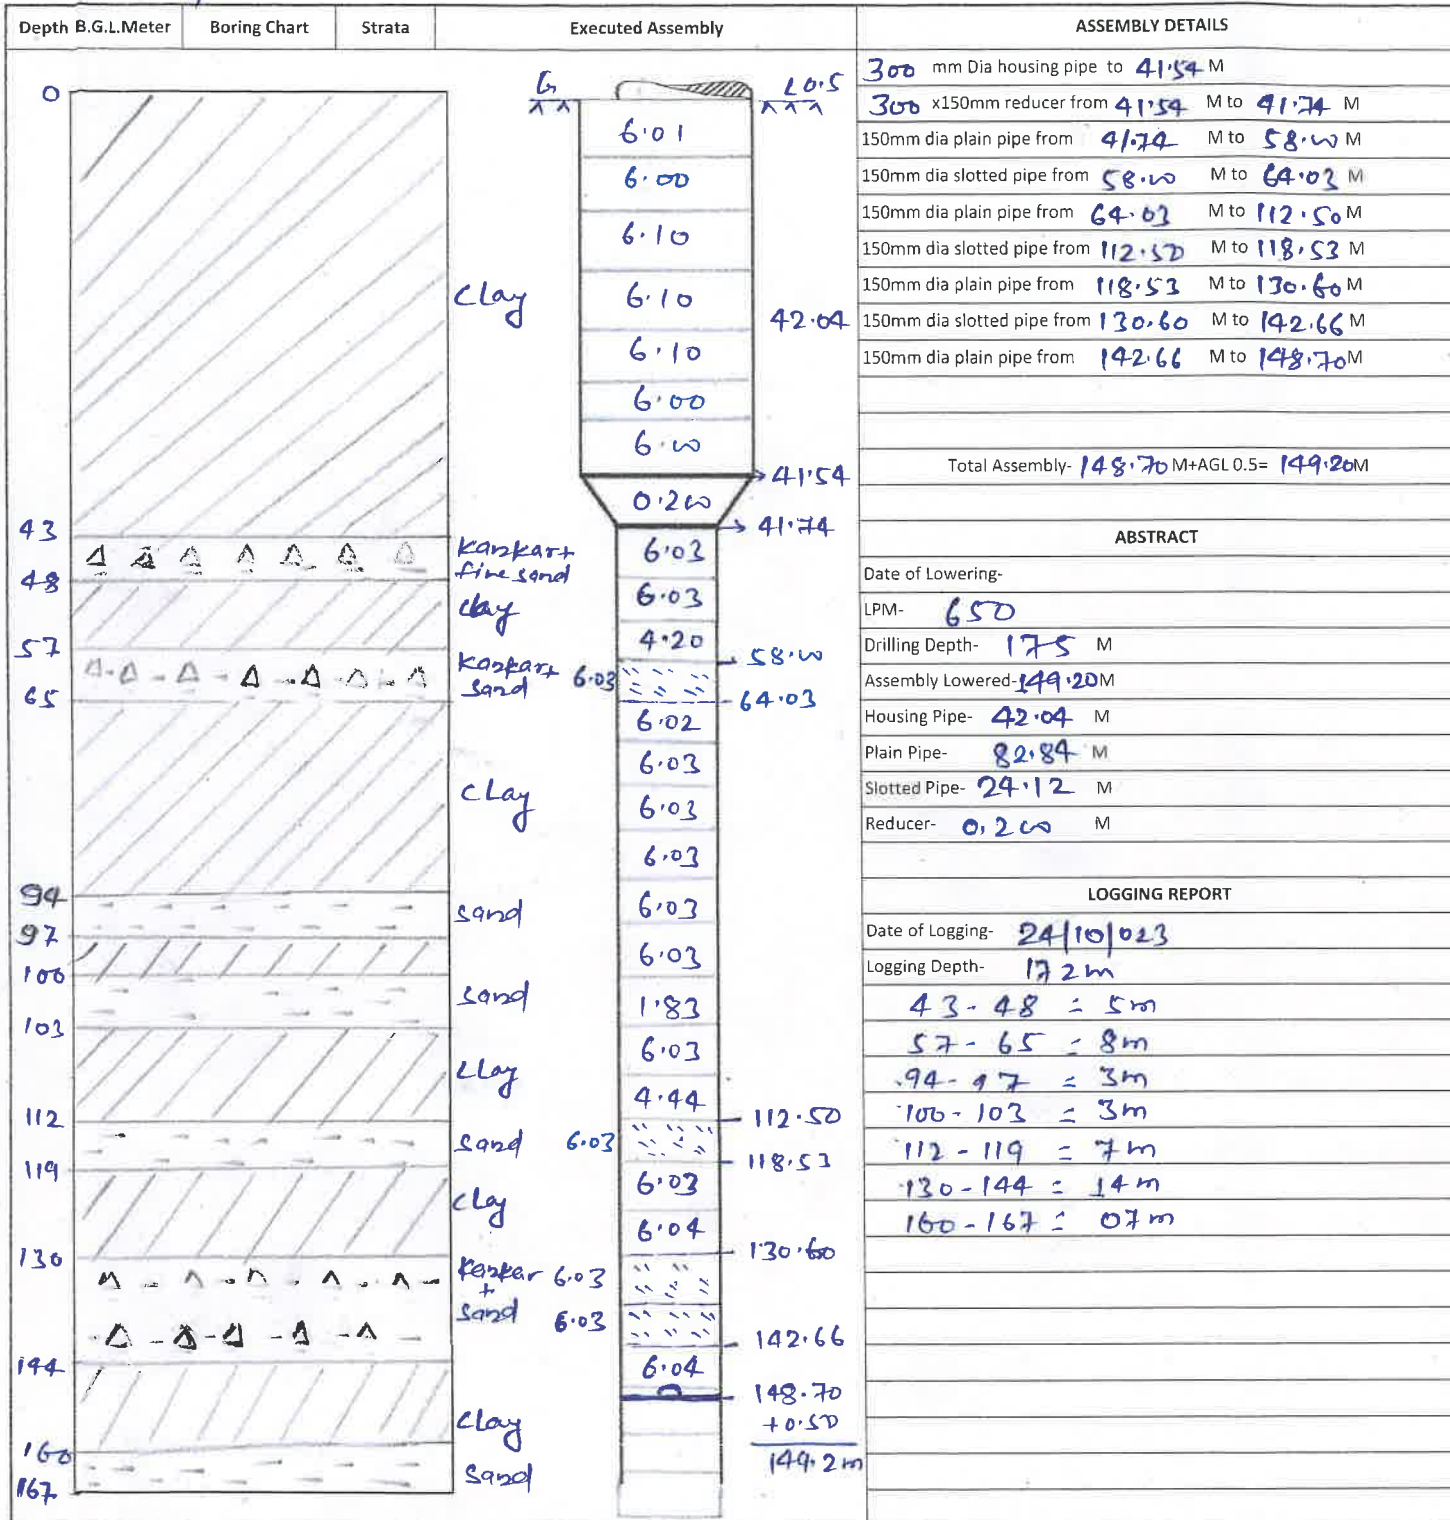 Depth B.G.L.Meter Boring Chart Strata Executed Assembly ASSEMBLY DETAILS
0
43
48
57
65
94
97
100
103
112
119
130
144
160
167
clay
Kankar+
fine sand
clay
Kankar+
sand
clay
sand
sand
clay
sand
clay
Kankar
+
sand
clay
sand
G L0.5
6.01
6.00
6.10
6.10
42.04
6.10
6.00
6.00
41.54
0.200
41.74
6.03
6.03
4.20
58.00
6.03
64.03
6.02
6.03
6.03
6.03
6.03
6.03
1.83
6.03
4.44
112.50
6.03
118.53
6.03
6.04
130.60
6.03
6.03
142.66
6.04
148.70
+0.50
149.2m
300 mm Dia housing pipe to 41.54 M
300 x150mm reducer from 41.54 M to 41.74 M
150mm dia plain pipe from 41.74 M to 58.00 M
150mm dia slotted pipe from 58.00 M to 64.03 M
150mm dia plain pipe from 64.03 M to 112.50 M
150mm dia slotted pipe from 112.50 M to 118.53 M
150mm dia plain pipe from 118.53 M to 130.60 M
150mm dia slotted pipe from 130.60 M to 142.66 M
150mm dia plain pipe from 142.66 M to 148.70 M
Total Assembly- 148.70 M+AGL 0.5= 149.20M
ABSTRACT
Date of Lowering-
LPM- 650
Drilling Depth- 175 M
Assembly Lowered- 149.20M
Housing Pipe- 42.04 M
Plain Pipe- 82.84 M
Slotted Pipe- 24.12 M
Reducer- 0.200 M
LOGGING REPORT
Date of Logging- 24/10/023
Logging Depth- 172m
43-48 = 5m
57-65 = 8m
94-97 = 3m
100-103 = 3m
112-119 = 7m
130-144 = 14m
160-167 = 07m